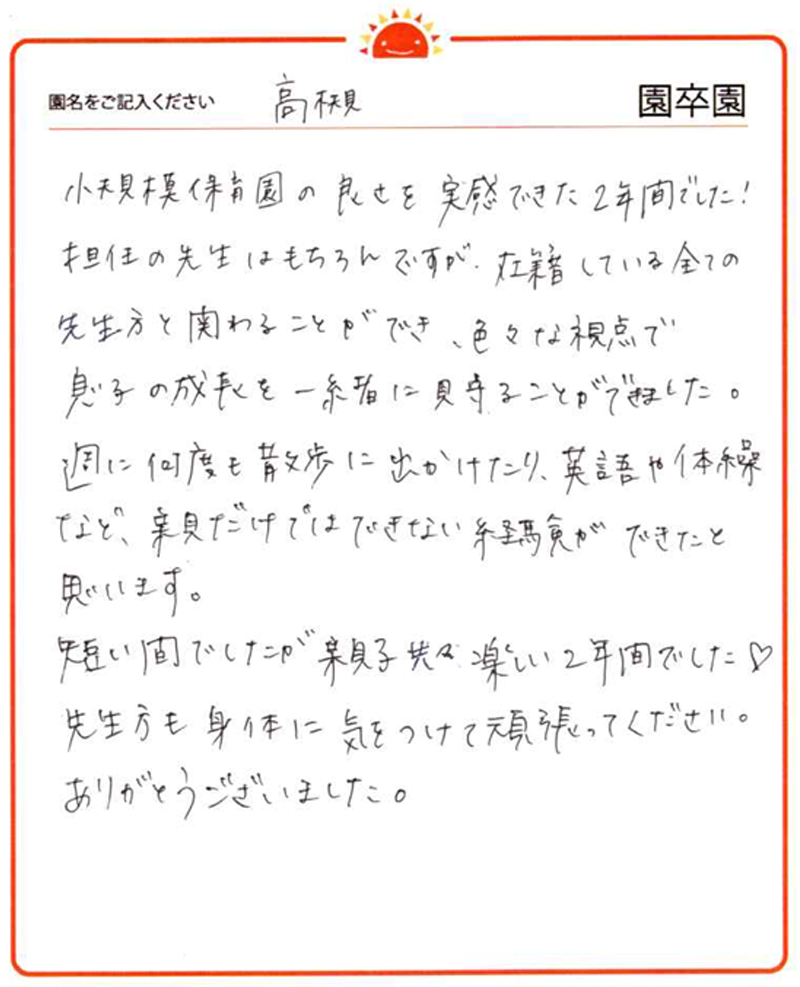 園名をご記入ください 高槻 園卒園
小規模保育園の良さを実感できた2年間でした!
担任の先生はもちろんですが、在籍している全ての
先生方と関わることができ、色々な視点で
息子の成長を一緒に見守ることができました。
週に何度も散歩に出かけたり、英語や体操
など、親だけではできない経験ができたと
思います。
短い間でしたが親子共々楽しい2年間でした♡
先生方も身体に気をつけて頑張ってください。
ありがとうございました。